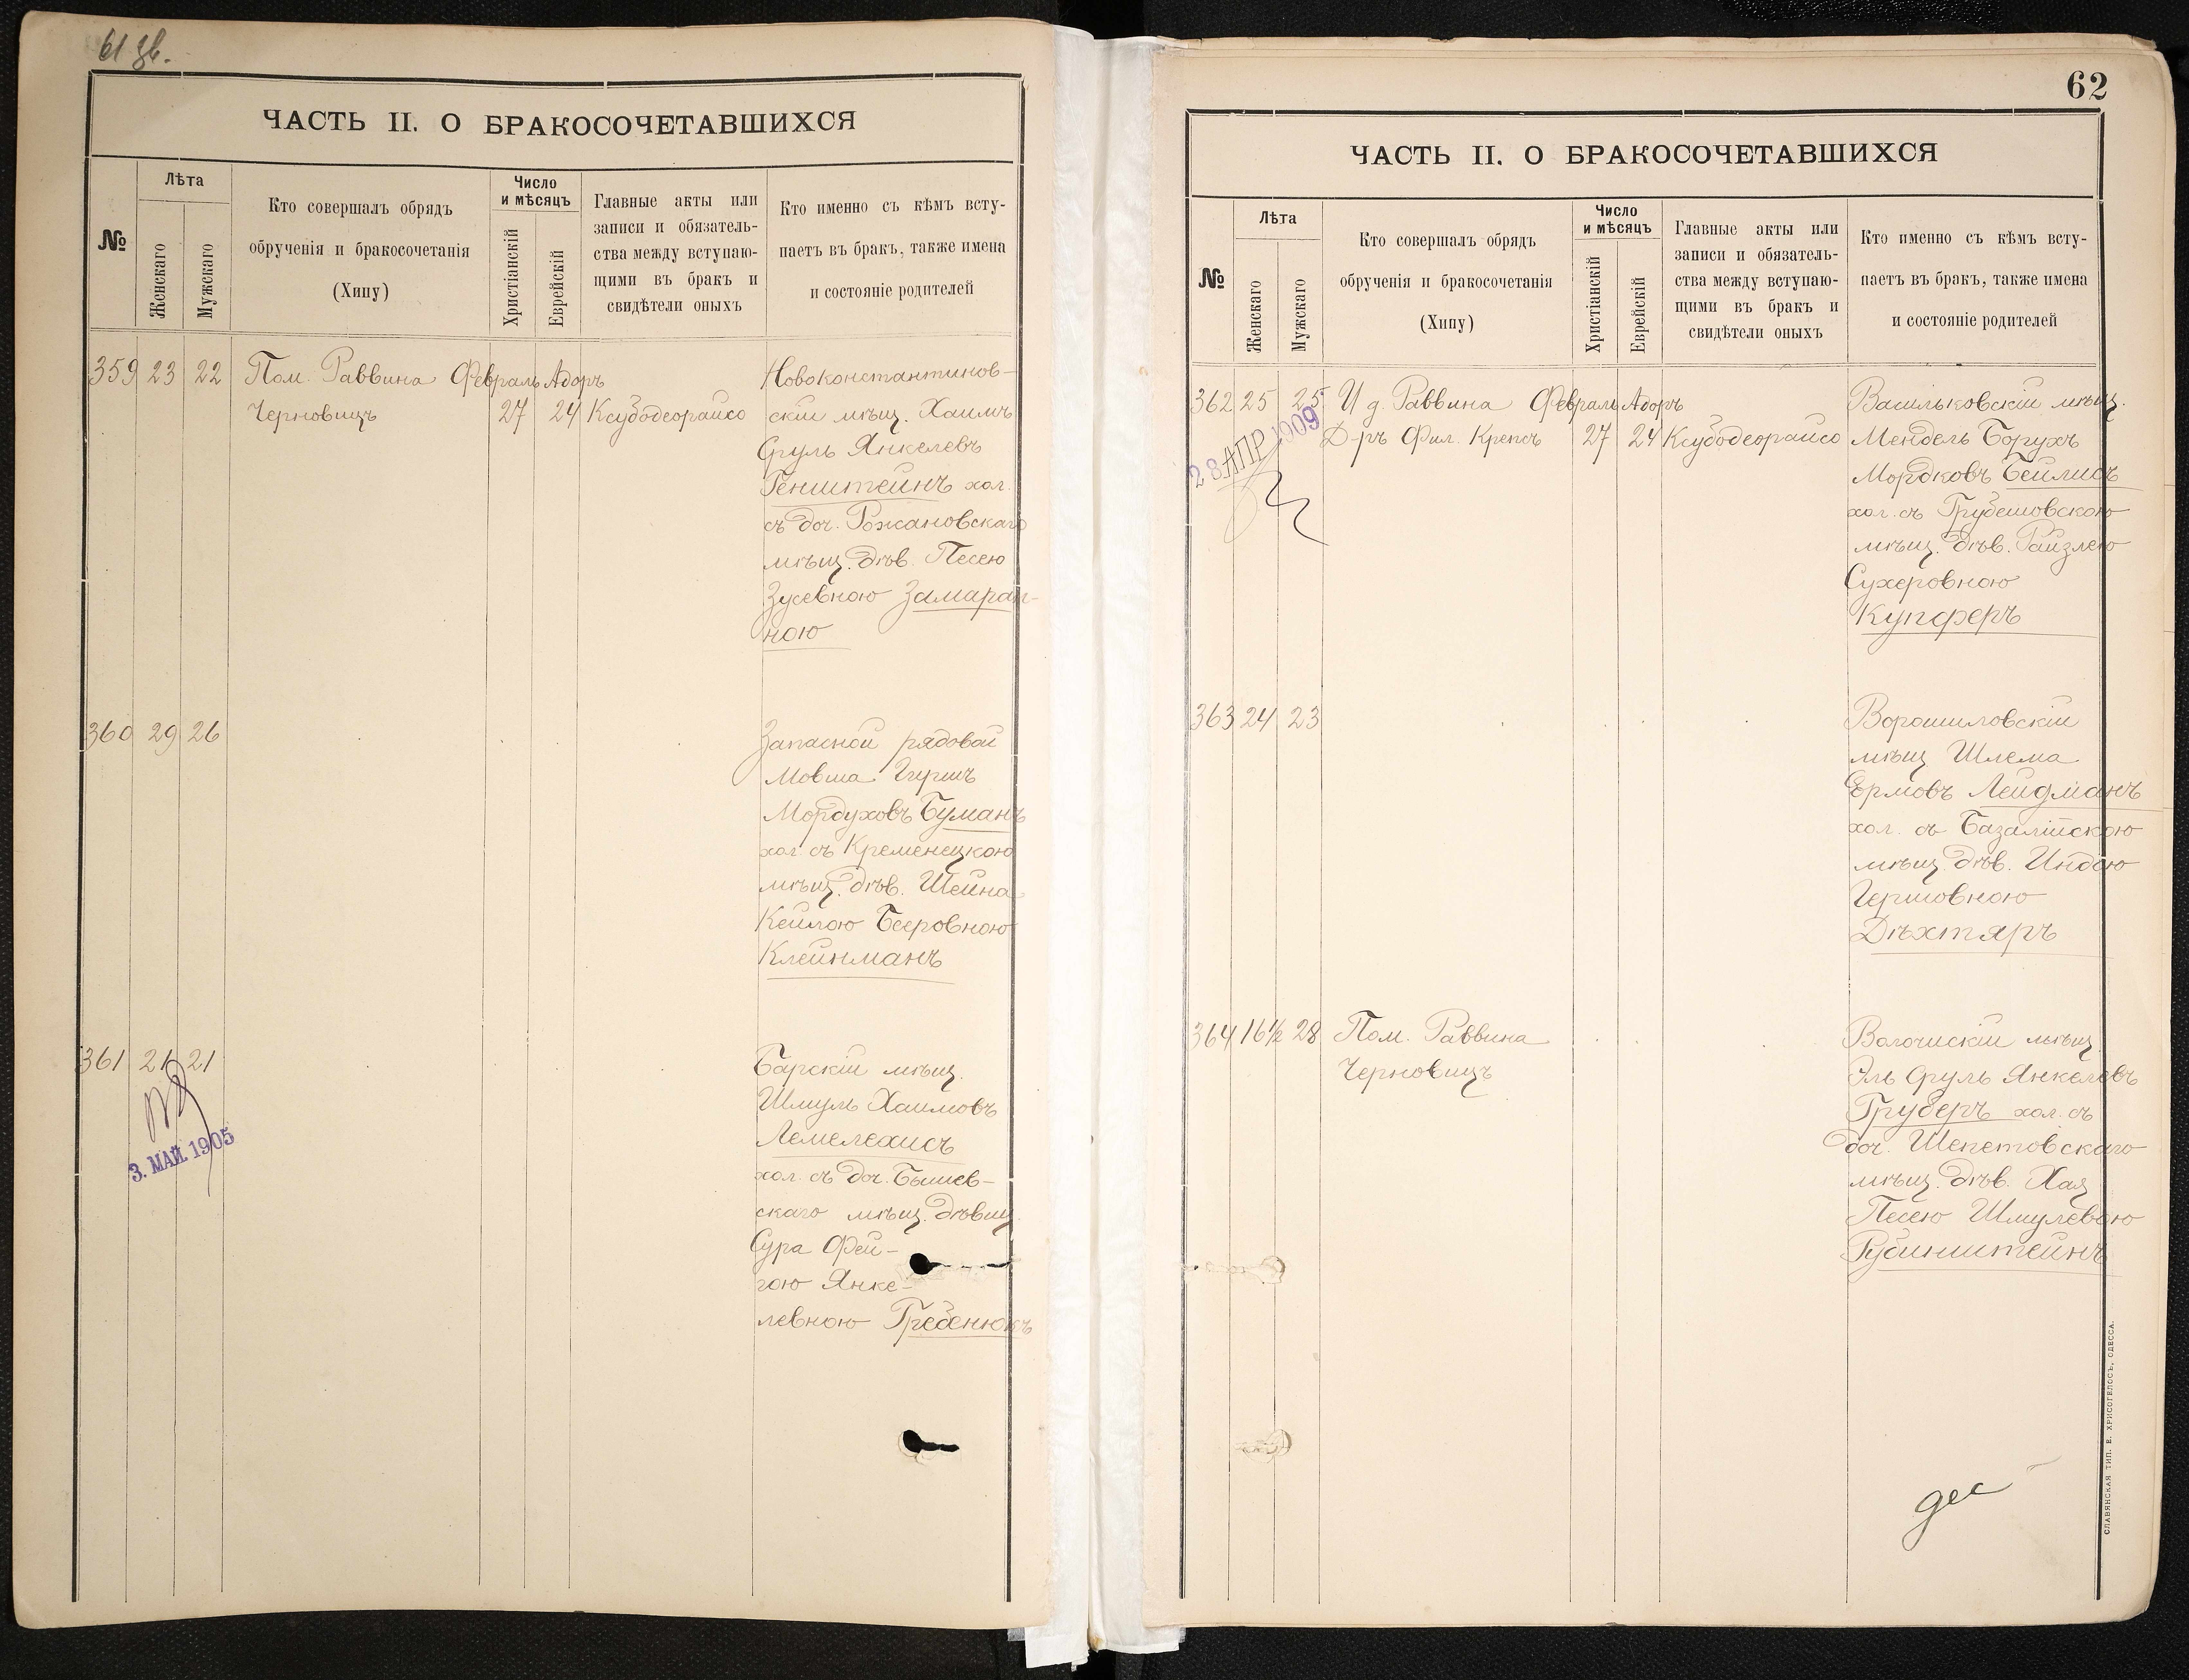 61 зв.
ЧАСТЬ II. О БРАКОСОЧЕТАВШИХСЯ
№
Лѣта
Женскаго
Мужскаго
Кто совершалъ обрядъ
обрученія и бракосочетанія
(Хипу)
Число
и мѣсяцъ
Христіанскій
Еврейскій
Главные акты или
записи и обязатель-
ства между вступаю-
щими въ бракъ и
свидѣтели оныхъ
Кто именно съ кѣмъ всту-
паетъ въ бракъ, также имена
и состояніе родителей
359 23 22 Пом. Раввина Февраль Адоръ Новоконстантинов-
Черновицъ 27 24 Ксубодеорайсо скій мѣщ. Хаимъ
Сруль Янкелевъ
Генштейнъ хол.
съ доч. Рожановскаго
мѣщ. дѣв. Песею
Зусевною Замарап-
ною
360 29 26 Запасной рядовой
Мовша Гершъ
Мордуховъ Буманъ
хол. съ Кременецкою
мѣщ. дѣв. Шейна
Кейлою Бееровною
Клейнманъ
361 21 21 Барскій мѣщ.
Шмуль Хаимовъ
Лемелехисъ
хол. съ доч. Бышев-
скаго мѣщ. дѣвиц
Сура Фей-
гою Янке-
левною Гребенюкъ
3. МАЙ. 1905
62
ЧАСТЬ II. О БРАКОСОЧЕТАВШИХСЯ
№
Лѣта
Женскаго
Мужскаго
Кто совершалъ обрядъ
обрученія и бракосочетанія
(Хипу)
Число
и мѣсяцъ
Христіанскій
Еврейскій
Главные акты или
записи и обязатель-
ства между вступаю-
щими въ бракъ и
свидѣтели оныхъ
Кто именно съ кѣмъ всту-
паетъ въ бракъ, также имена
и состояніе родителей
362 25 25 И д. Раввина Февраль Адоръ Васильковскій мѣщ.
Д-ръ Фил. Крепсъ 27 24 Ксубодеорайсо Мендель Борухъ
28 АПР 1909
Мордковъ Бейлисъ
хол. съ Грубешовскою
мѣщ. дѣв. Райзлею
Сухеровною
Купферъ
363 24 23 Ворошиловскій
мѣщ Шлема
Ермовъ Лейдманъ
хол. съ Базалійскою
мѣщ. дѣв. Индою
Гершовною
Дѣхтяръ
364 16½ 28 Пом. Раввина Волочискій мѣщ
Черновицъ Эль Сруль Янкелевъ
Груберъ хол. съ
доч. Шепетовскаго
мѣщ. дѣв. Хая
Песею Шмулевою
Рубинштейнъ
СЛАВЯНСКАЯ ТИП. Е. ХРИСОГЕЛОСЪ, ОДЕССА.